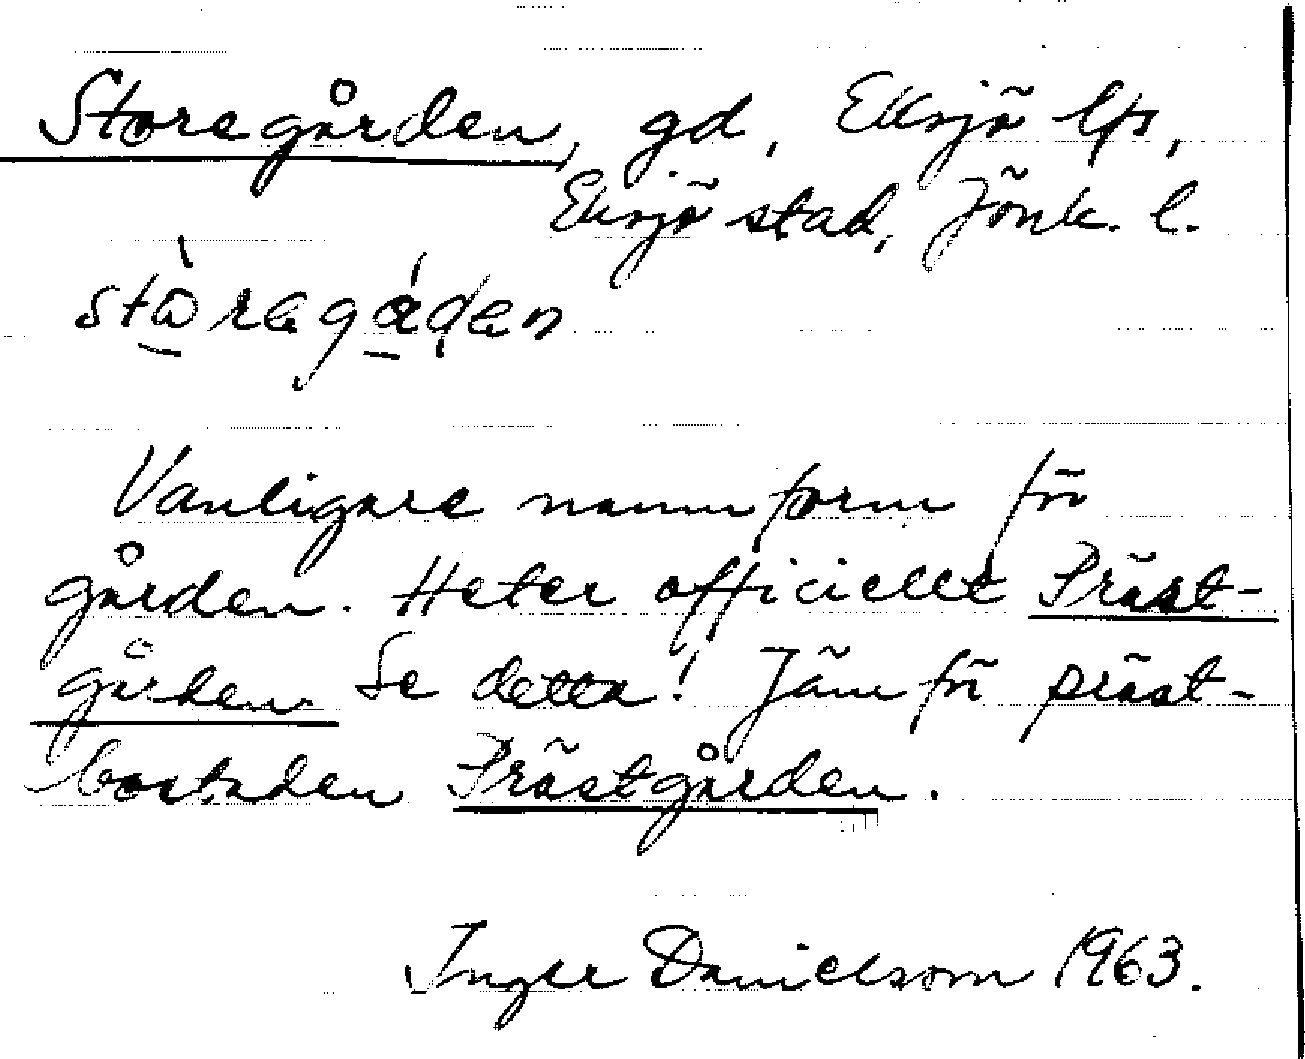 Storegården, gd, Eksjö lfs,
Eksjö stad, Jönk. l.
Vanligare namnform för
gården. Heter officiellt Präst-
gården Se detta! Jämför präst-
bostaden Prästgården.
Inger Danielsson 1963.